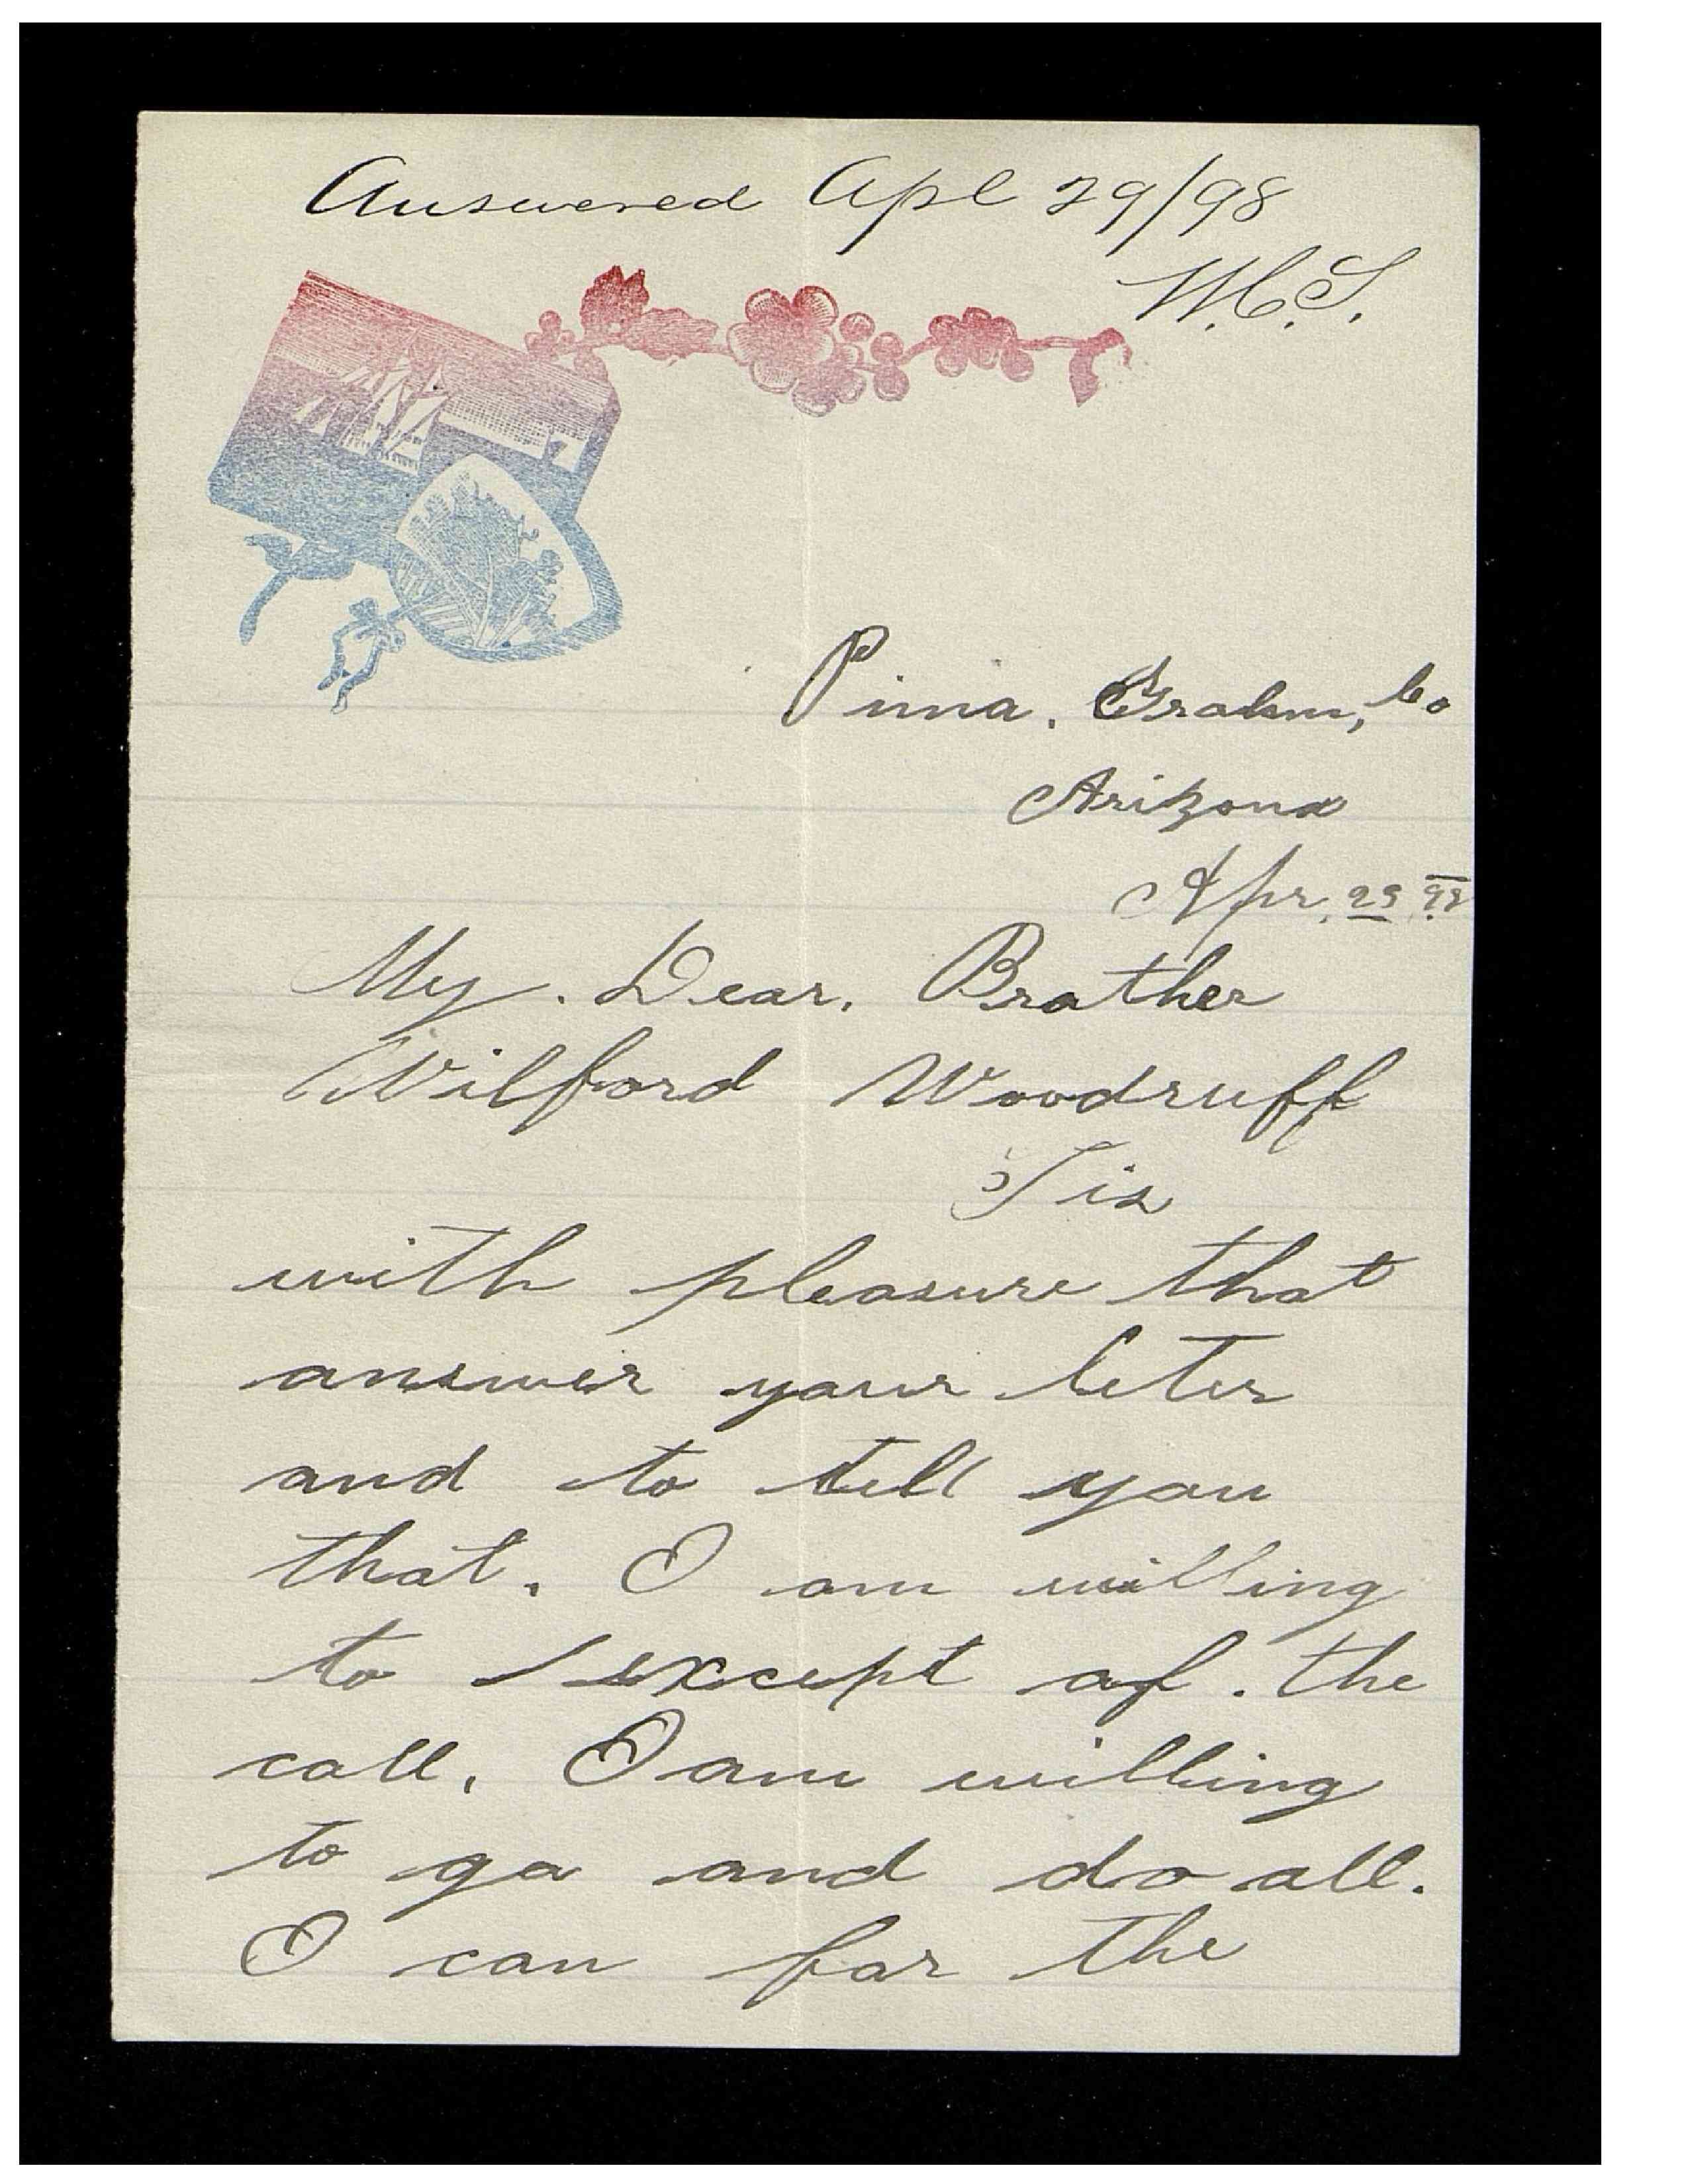 Answered Apl 29/98
W.C.S.
Pima. Grahm, Co
Arizona
Apr. 23 98
My. Dear. Brother
Wilford Woodruff
Tis
with pleasure that
answer your leter
and to tell you
that. I am willing
to except of. the
call. I am willing
to go and do all.
I can for the